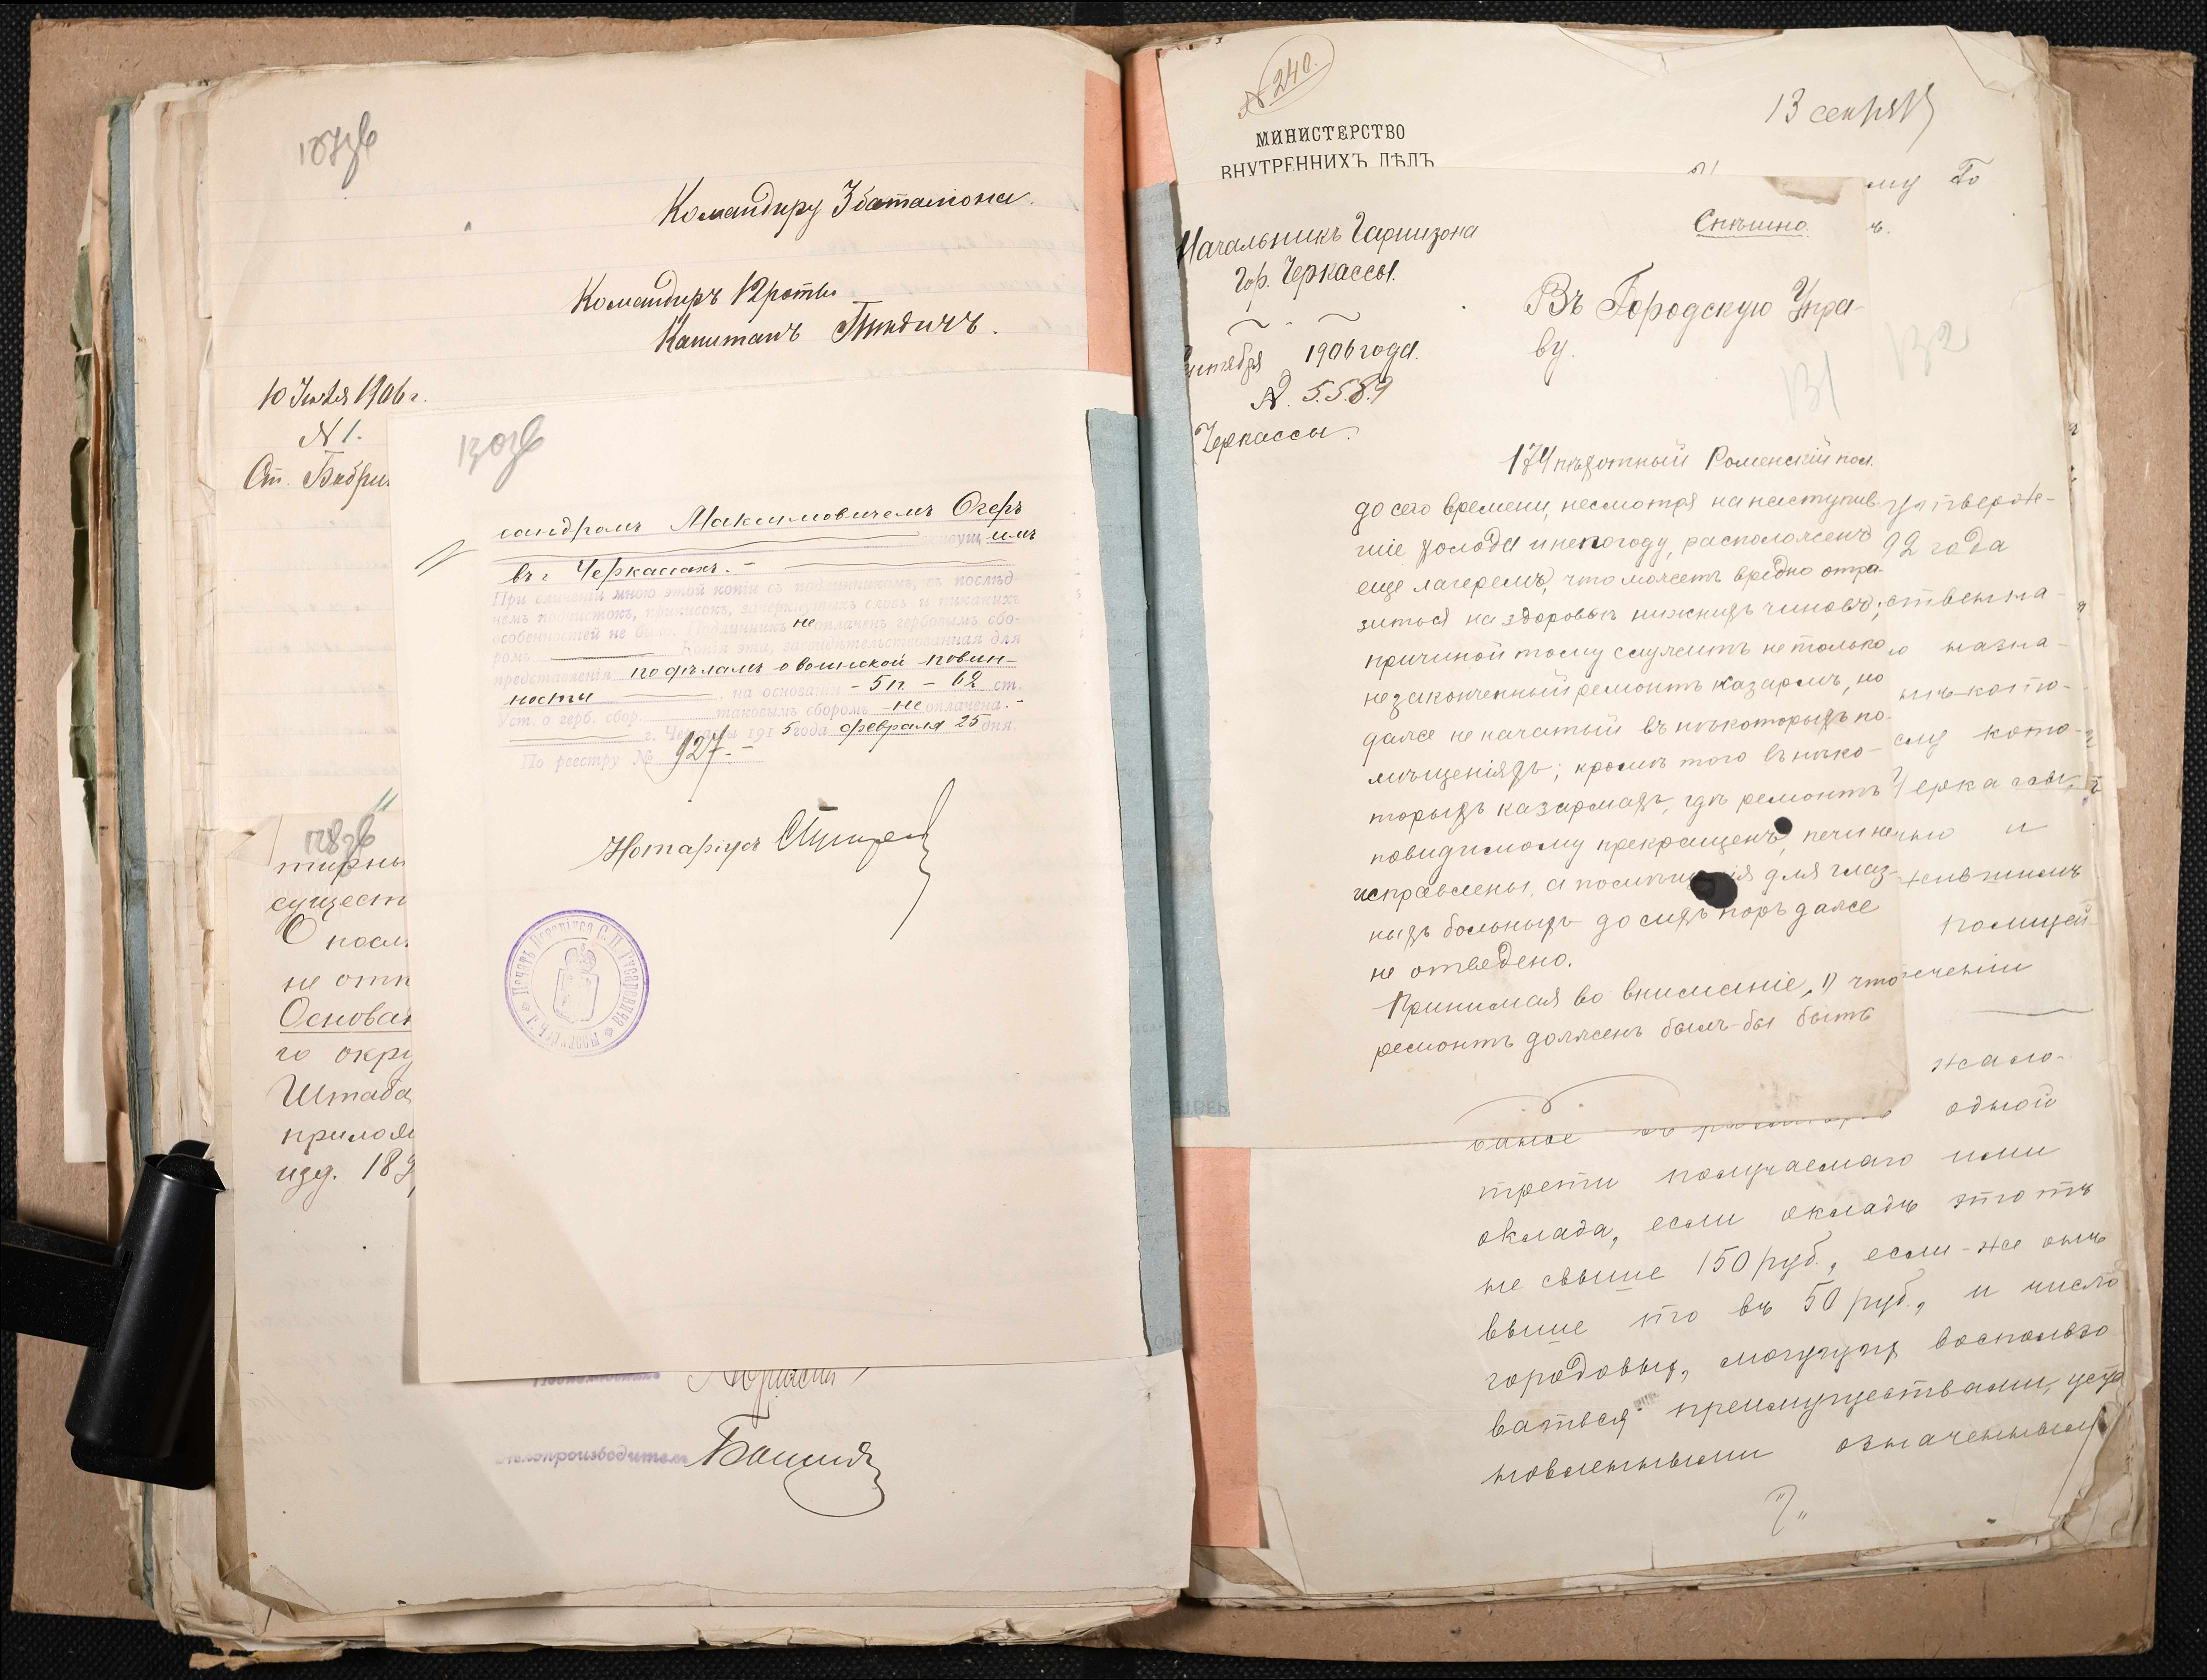 107зв
Командиру 3 баталіона.
Командиръ 12 роты
Капитанъ
10 Іюля 1906 г.
N 1.
Ст. Бобрин
130зв
сандромъ Максимовичемъ Огеръ
живущ имъ
въ г. Черкассахъ. –
При сличеніи мною этой копіи съ подлинникомъ, въ послѣд
немъ подчистокъ, приписокъ, зачеркнутыхъ словъ и никакихъ
особенностей не было. Подлинникъ не оплаченъ гербовымъ сбо-
ромъ. Копія эта, засвидѣтельствованная для
представленія по дѣламъ о воинской повин-
ности, на основаніи – 5 п. – 62 ст.
Уст. о герб. сбор. таковымъ сборомъ – не оплачена. –
г. Черкассы 191 5 года февраля 25 дня.
По реестру № 927. –
Нотаріусъ
128зв
тирны
сущест
О посл
не отп
Основан
го окру
Штаба
прилож
изд. 189
Дѣлопроизводитель
N 240.
МИНИСТЕРСТВО
ВНУТРЕННИХЪ ДѢЛЪ
13 сентября
му Го
Спѣшно.
ъ.
Начальникъ Гарнизона
гор. Черкассы.
1906 года.
№. 5589
Черкассы.
Въ Городскую Упра-
ву.
131
132
174 пѣхотный Роменскій пол.
до сего времени, несмотря на наступив-
шіе холода и непогоду, расположенъ
еще лагеремъ, что можетъ вредно отра-
зиться на здоровьи нижнихъ чиновъ;
причиной тому служитъ не только
незаконченный ремонтъ казармъ, но
даже не начатый въ нѣкоторыхъ по-
мѣщеніяхъ; кромѣ того въ нѣко-
торыхъ казармахъ, гдѣ ремонтъ
повидимому прекращенъ, печи не
исправлены, а помѣщенія для глаз-
ныхъ больныхъ до сихъ поръ даже
не отведено.
Принимая во вниманіе, 1) что
ремонтъ долженъ былъ-бы быть
утвержде-
92 года
ственна-
о назна-
имъ кото-
сму кото-
Черкассы,
но и
жившимъ
полицей
теченіи
жало-
одной
трети получаемаго ими
оклада, если окладъ этотъ
не свыше 150 руб., если-же онъ
выше то въ 50 руб., и число
городовыхъ, могущихъ воспользо
ваться преимуществами, уста
новленными означеннымъ